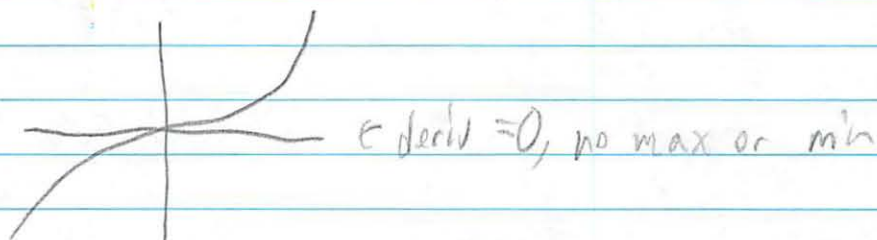 ← deriv = 0, no max or min